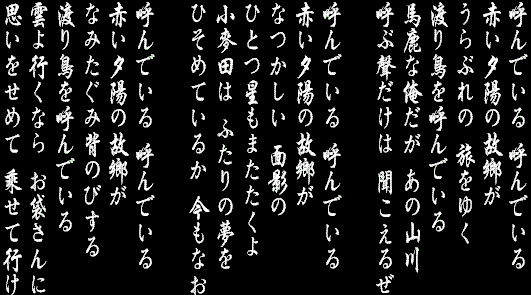 呼んでいる 呼んでいる
赤い夕陽の故郷が
うらぶれの 旅をゆく
渡り鳥を呼んでいる
馬鹿な俺だが あの山川
呼ぶ聲だけは 聞こえるぜ
呼んでいる 呼んでいる
赤い夕陽の故郷が
なつかしい 面影の
ひとつ星もまたたくよ
小麥田は ふたりの夢を
ひそめているか 今もなお
呼んでいる 呼んでいる
赤い夕陽の故郷が
なみたぐみ 背のびする
渡り鳥を呼んでいる
雲よ行くなら お袋さんに
思いをせめて 乗せて行け